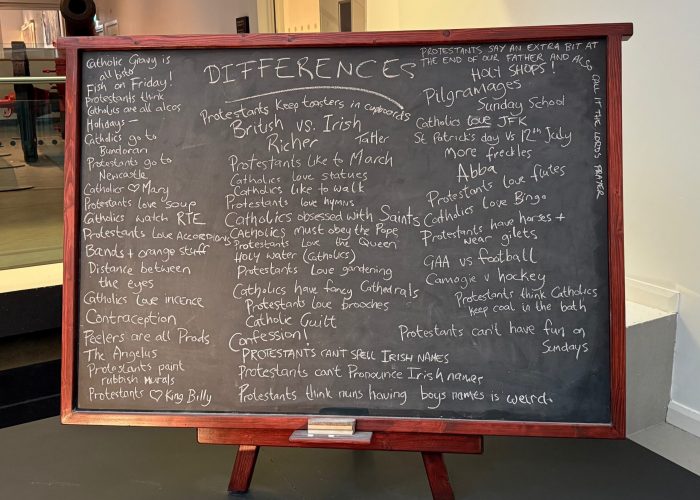 DIFFERENCES
Catholic Gravy is
all bisto
Fish on Friday!
Protestants think
Catholics are all alcos
Holidays –
Catholics go to
Bundoran
Protestants go to
Newcastle
Catholics ♡ Mary
Protestants love soup
Catholics watch RTE
Protestants Love Accordions
Bands + orange stuff
Distance between
the eyes
Catholics love incence
Contraception
Peelers are all Prods
The Angelus
Protestants paint
rubbish murals
Protestants ♡ King Billy
Protestants keep toasters in cupboards
British vs. Irish
Richer
Taller
Protestants like to March
Catholics love statues
Catholics like to walk
Protestants love hymns
Catholics obsessed with Saints
Catholics must obey the Pope
Protestants Love the Queen
Holy water (Catholics)
Protestants love gardening
Catholics have fancy Cathedrals
Protestants love brooches
Catholic Guilt
Confession!
PROTESTANTS CAN'T SPELL IRISH NAMES
Protestants can't Pronounce Irish names
Protestants think nuns having boys names is weird.
PROTESTANTS SAY AN EXTRA BIT AT
THE END OF OUR FATHER AND ALSO
CALL IT THE LORDS PRAYER
HOLY SHOPS!
Pilgramages
Sunday School
Catholics love JFK
St Patrick's day Vs 12th July
More freckles
Abba
Protestants love flutes
Catholics Love Bingo
Protestants have horses +
wear gilets
GAA vs football
Camogie v hockey
Protestants think Catholics
keep coal in the bath
Protestants can't have fun on
Sundays